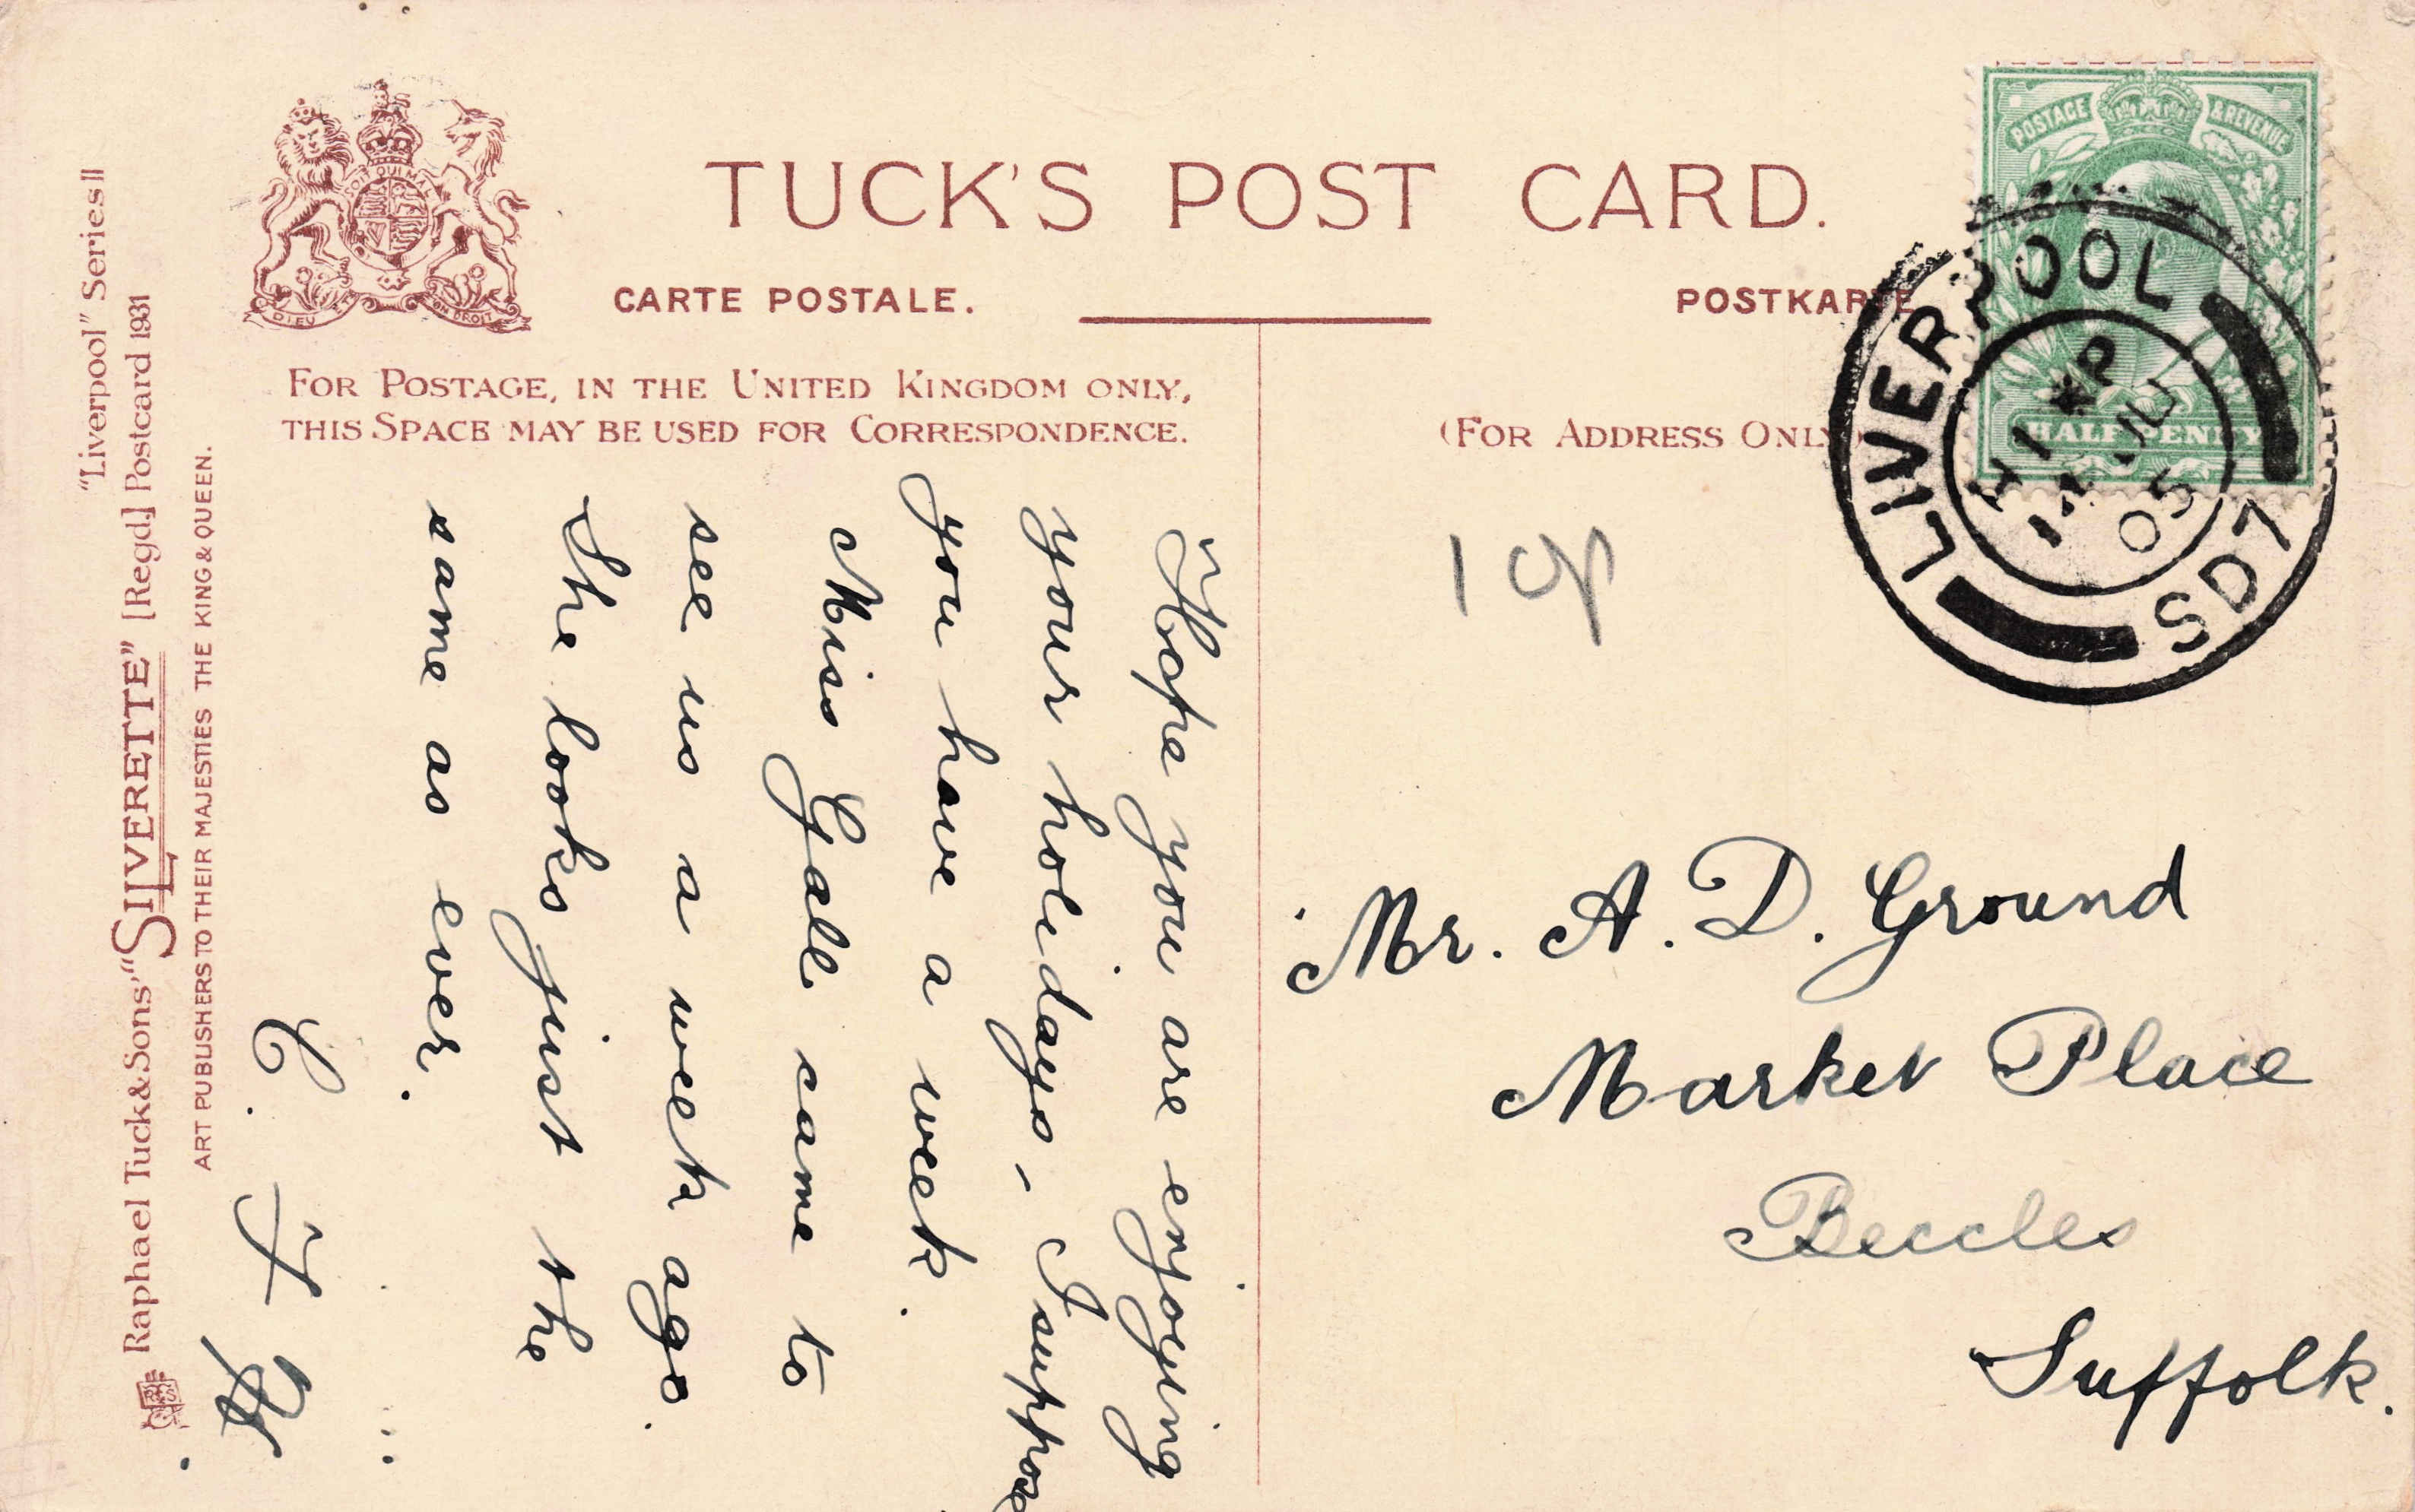 TUCK'S POST CARD.
CARTE POSTALE.
POSTKARTE
FOR POSTAGE, IN THE UNITED KINGDOM ONLY,
THIS SPACE MAY BE USED FOR CORRESPONDENCE.
(FOR ADDRESS ONLY)
"Liverpool" Series II
Raphael Tuck & Sons' "SILVERETTE" [Regd.] Postcard 1931
ART PUBLISHERS TO THEIR MAJESTIES THE KING & QUEEN.
DIEU ET MON DROIT
POSTAGE & REVENUE
HALFPENNY
LIVERPOOL
05
SD7
Hope you are enjoying
your holidays, - I suppose
you have a week.
Miss Gale came to
see us a week ago.
She looks just the
same as ever.
Mr. A. D. Ground
Market Place
Beccles
Suffolk.